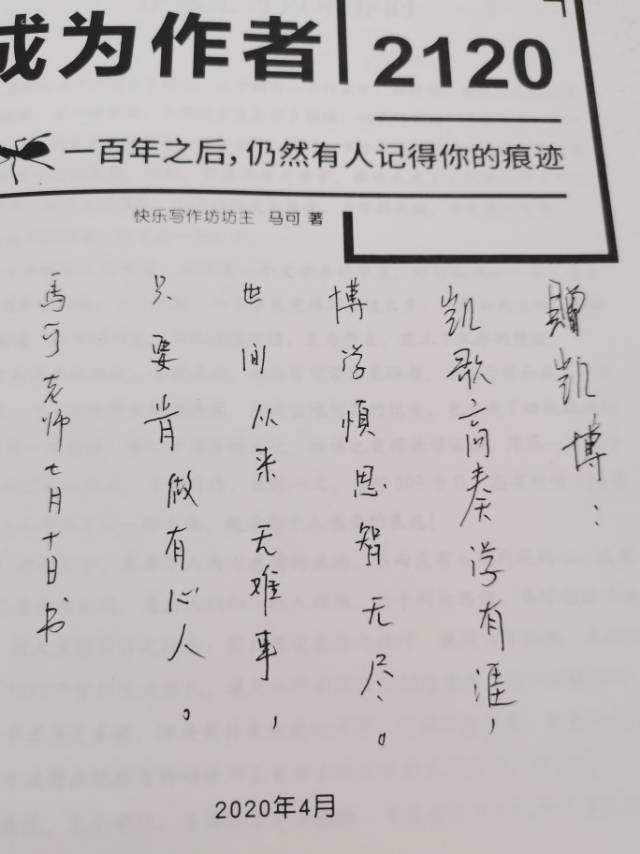 成为作者
2120
一百年之后，仍然有人记得你的痕迹
快乐写作坊坊主 马可 著
赠凯博：
凯歌高奏学有涯，
博学慎思智无尽。
世间从来无难事，
只要肯做有心人。
马可老师七月十日书
2020年4月